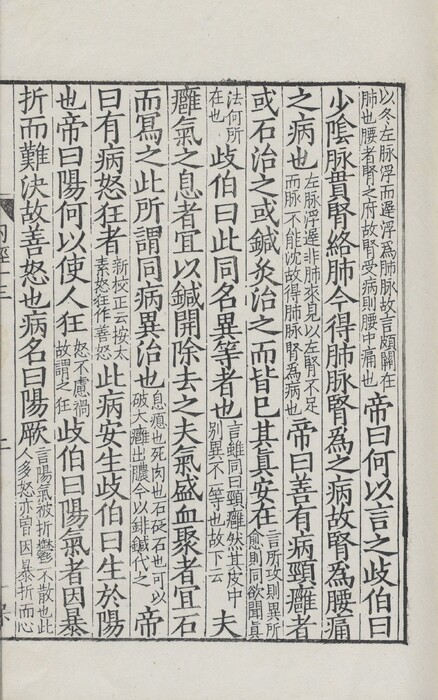 以冬左脉浮而遲浮為肺脉故言頗關在
肺也腰者腎之府故腎受病則腰中痛也
帝曰何以言之歧伯曰
少陰脉貫腎絡肺今得肺脉腎為之病故腎為腰痛
之病也
左脉浮遲非肺來見以左腎不足
而脉不能沈故得肺脉腎為病也
帝曰善有病頸癰者
或石治之或鍼灸治之而皆已其真安在
言所攻則異所
愈則同欲聞真
法何所
在也
歧伯曰此同名異等者也
言雖同曰頸癰然其皮中
别異不一等也故下云
夫
癰氣之息者宜以鍼開除去之夫氣盛血聚者宜石
而寫之此所謂同病異治也
息瘜也死肉也石砭石也可以
破大癰出膿今以䤵鍼代之
帝
曰有病怒狂者
新校正云按太
素怒狂作善怒
此病安生歧伯曰生於陽
也帝曰陽何以使人狂
怒不慮禍
故謂之狂
歧伯曰陽氣者因暴
折而難決故善怒也病名曰陽厥
言陽氣被折鬱不散也此
人多怒亦曾因暴折而心